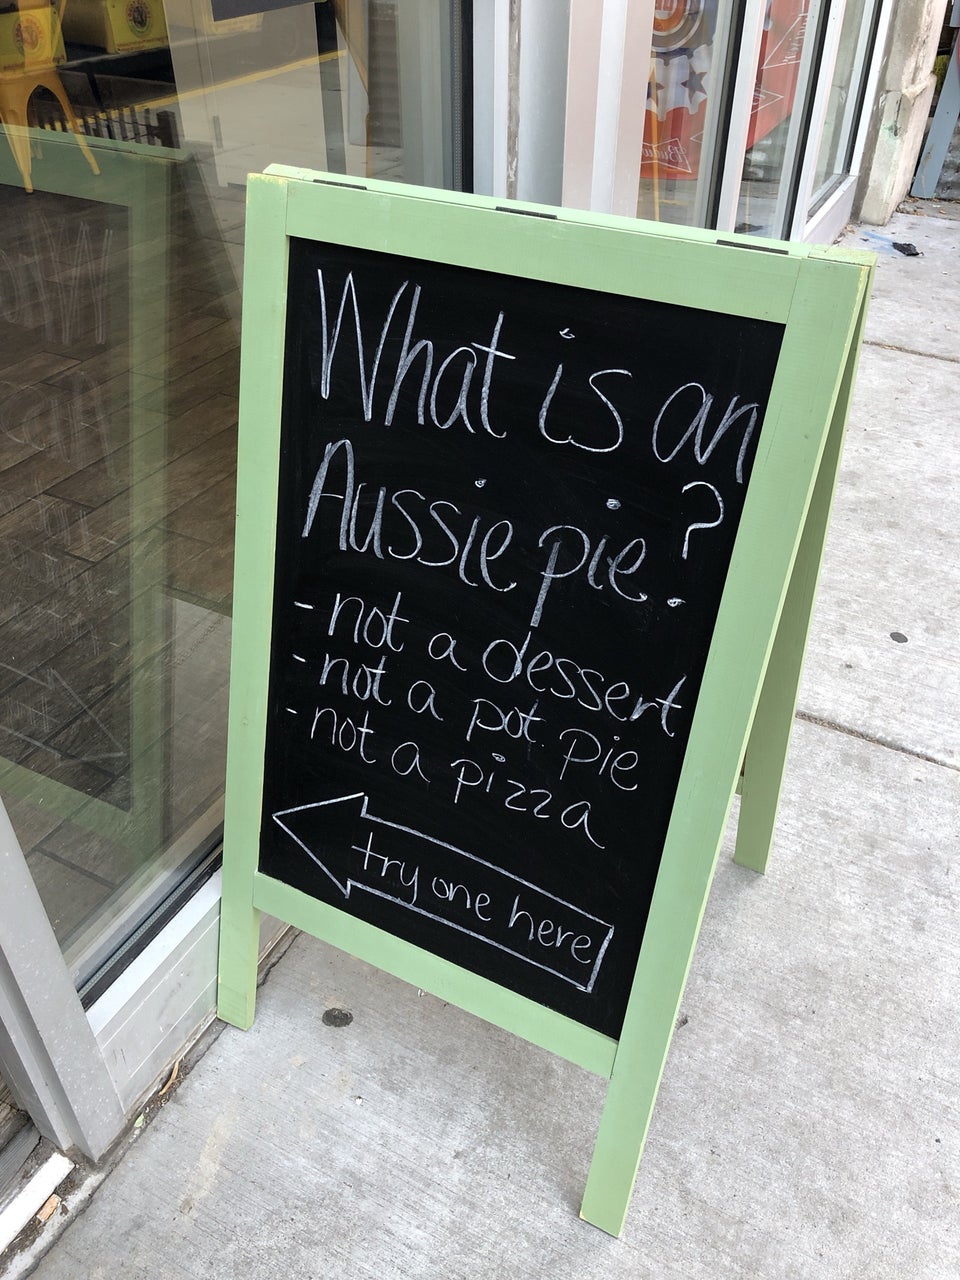 What is an
Aussie pie?
- not a dessert
- not a pot pie
- not a pizza
try one here